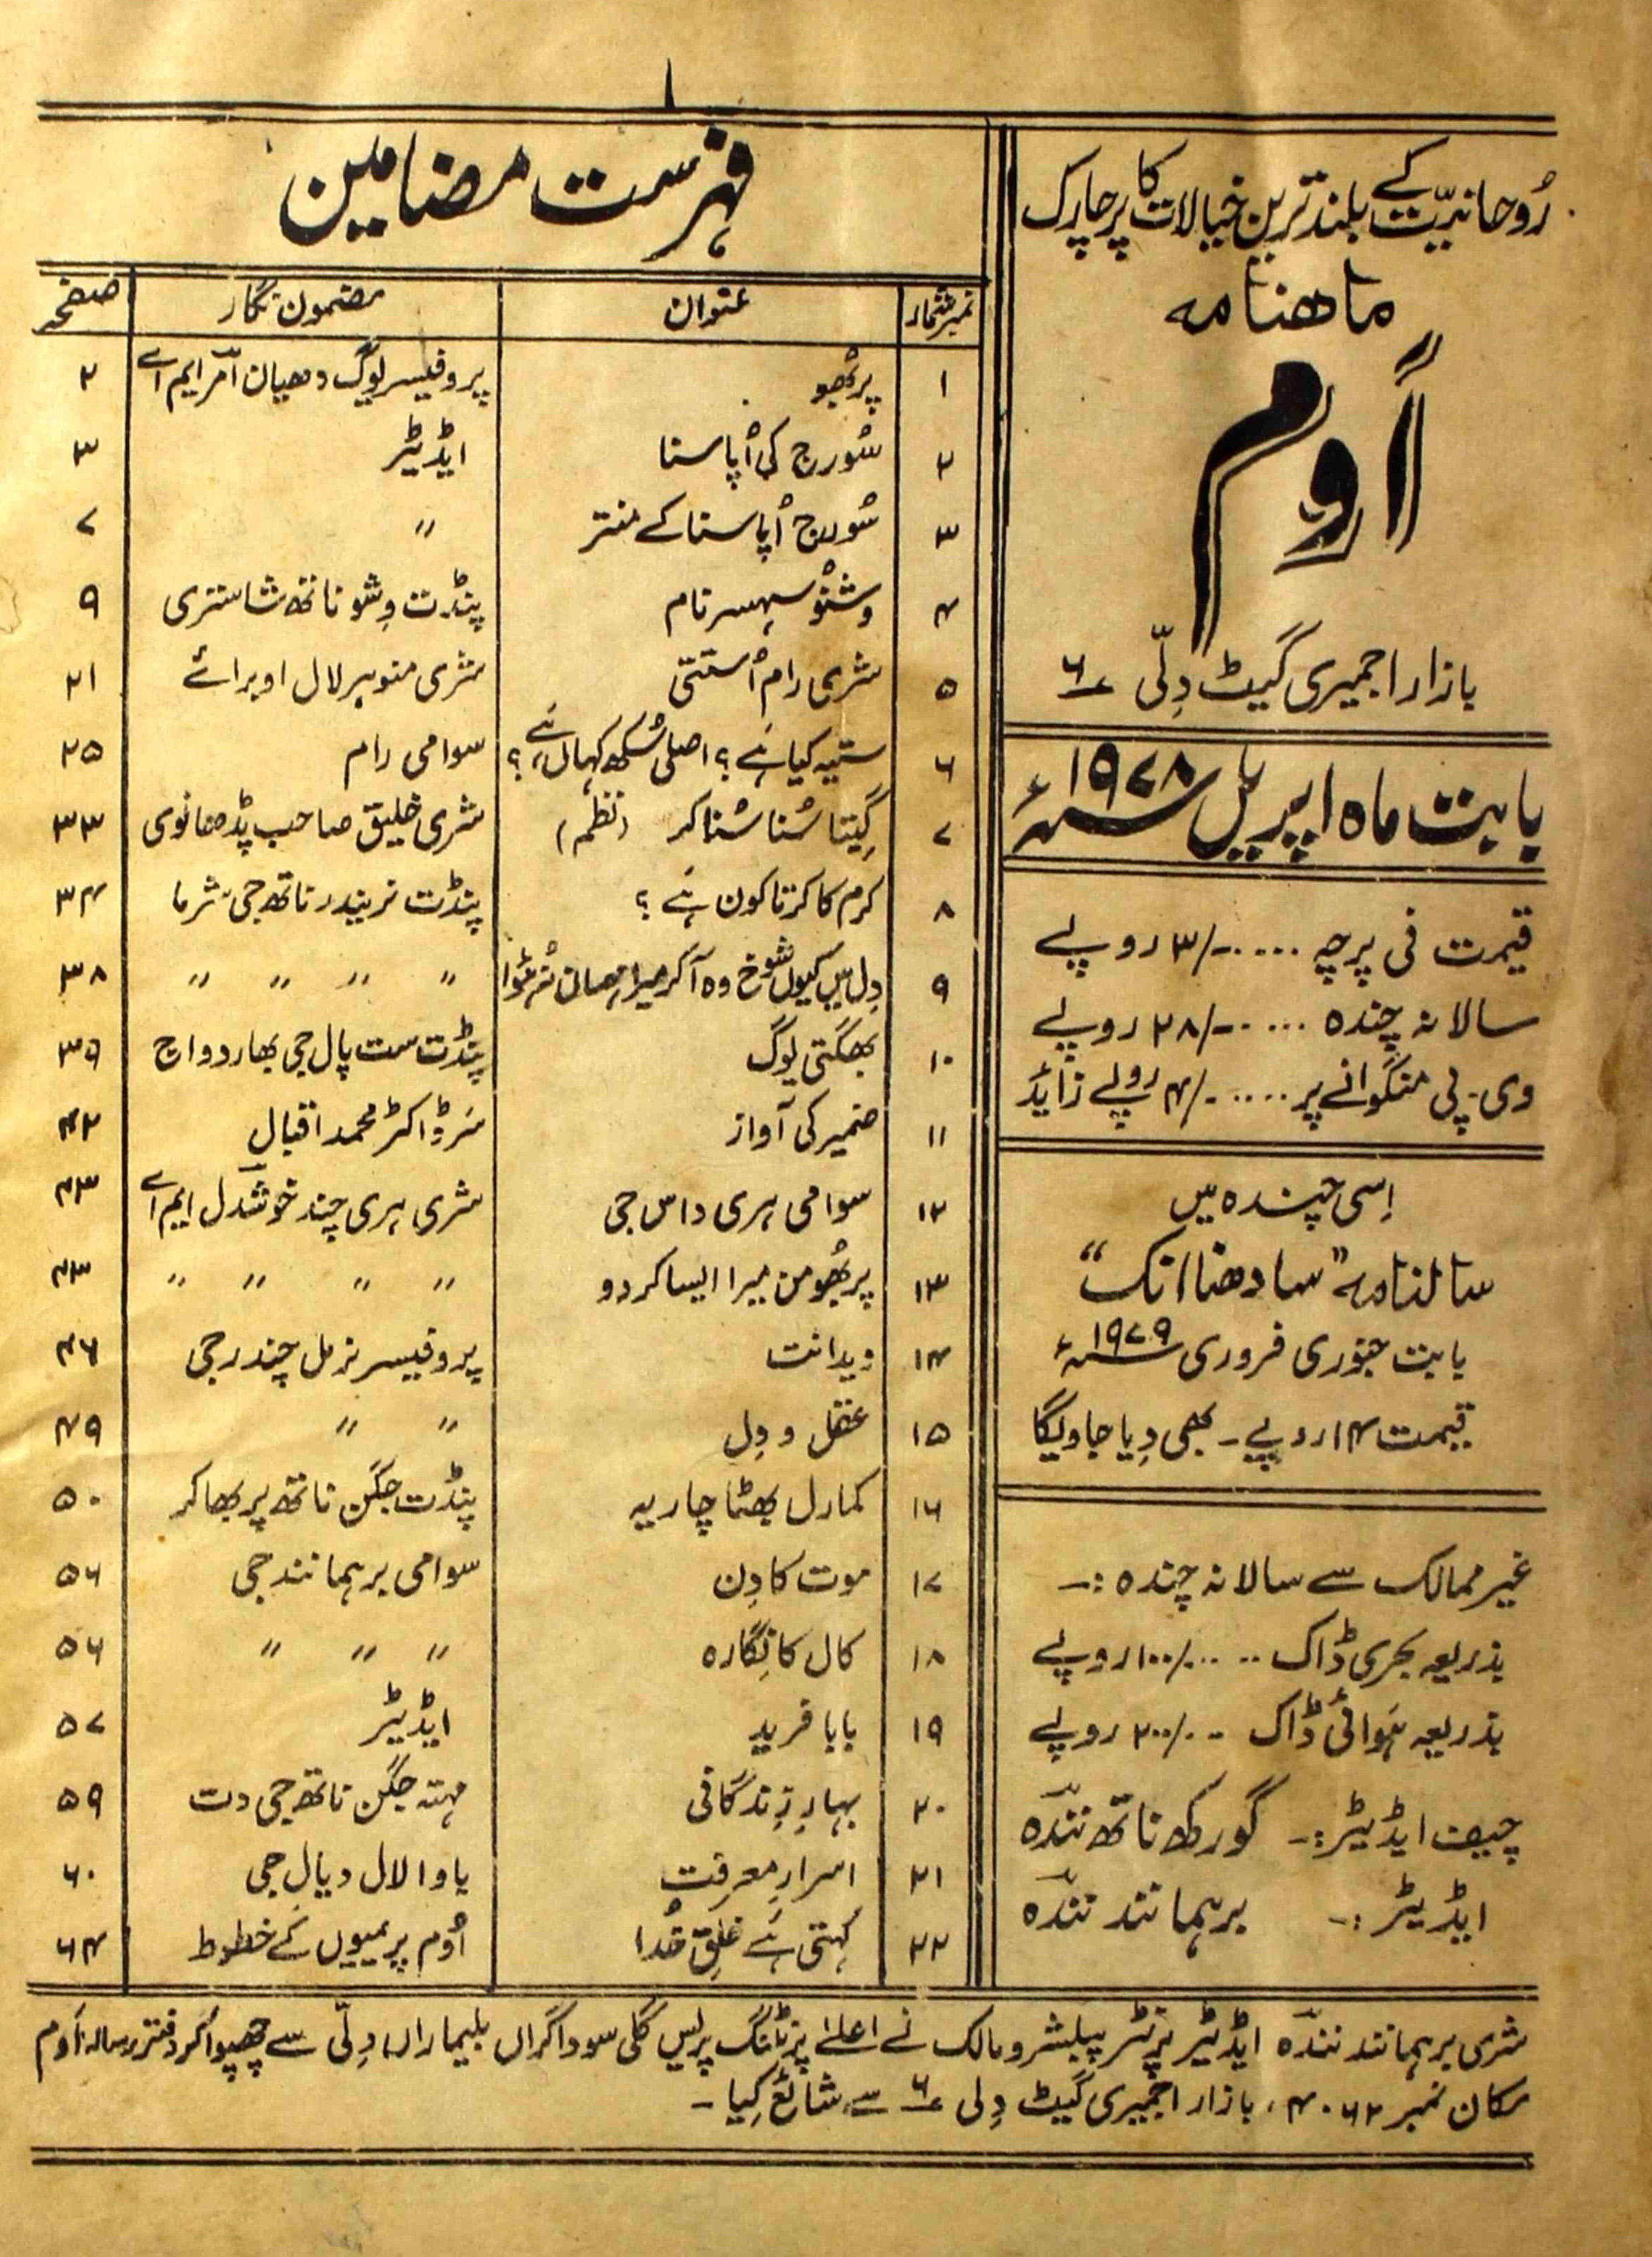 ۱
رُوحانیّت کے بلند ترین خیالات کا پرچارک
ماہنامہ
اوم
بازار اجمیری گیٹ دِلّی ۶
بابت ماہ اپریل ۱۹۷۸ء
قیمت فی پرچہ ..... -/۳ روپے
سالانہ چندہ ..... -/۲۸ روپے
وی۔ پی منگوانے پر ..... -/۴ روپے زائد
اِسی چندہ میں
سالنامہ "سادھنا انک"
بابت جنوری فروری ۱۹۷۹ء
قیمت ۱۴ روپے۔ بھی دِیا جاویگا
غیر ممالک سے سالانہ چندہ :۔
بذریعہ بحری ڈاک ..... ۱۰۰/۰ روپے
بذریعہ ہَوائی ڈاک - ۲۰۰/۰ روپے
چیف ایڈیٹر:۔ گورکھ ناتھ نندہ
ایڈیٹر :۔ برہمانند نندہ
فہرست مضامین
نمبر شمار عنوان مضمون نگار صفحہ
۱ پربھُو پروفیسر لوگ دھیان آمر ایم اے ۲
۲ سُورج کی اُپاسنا ایڈیٹر ۳
۳ سُورج اُپاسنا کے منتر " ۷
۴ وشنُو سہسر نام پنڈت وِشو ناتھ شاستری ۹
۵ شری رام اُستتی شری منوہر لال اوبرائے ۲۱
۶ ستیہ کیا ہَے ؟ اصلی سُکھ کہاں ہَے ؟ سوامی رام ۲۵
۷ گِیتا سُنا سُنا کر (نظم) شری خلیق صاحب بڈھانوی ۳۳
۸ کرم کا کرتا کون ہَے ؟ پنڈت نریندر ناتھ جی شرما ۳۴
۹ دِل میں کیوں شوخ وہ آ کر میرا مہمان نہ ہُوا " " " " ۳۸
۱۰ بھگتی یوگ پنڈت ست پال جی بھاردواج ۳۹
۱۱ ضمیر کی آواز سَر ڈاکٹر محمد اقبال ۴۲
۱۲ سوامی ہری داس جی شری ہری چند خوشدل ایم اے ۴۳
۱۳ پربھُو من میرا ایسا کر دو " " " " ۴۳
۱۴ ویدانت پروفیسر نرمل چندر جی ۴۶
۱۵ عقل و دِل " " ۴۹
۱۶ کمارل بھٹاچاریہ پنڈت جگن ناتھ پربھاکر ۵۰
۱۷ موت کا دِن سوامی برہمانند جی ۵۶
۱۸ کال کا نگارہ " " " ۵۶
۱۹ بابا فرید ایڈیٹر ۵۷
۲۰ بہارِ زِندگانی مہتہ جگن ناتھ جی دت ۵۹
۲۱ اسرارِ معرفت باوا لال دیال جی ۶۰
۲۲ کہتی ہَے خلقِ خُدا اُوم پریمیوں کے خطوط ۶۴
شری برہمانند نندہ ایڈیٹر پرنٹر پبلشر و مالک نے اعلےٰ پرنٹنگ پریس گلی سوداگراں بلیماراں دِلّی سے چھپوا کر دفتر رسالہ اوم
مکان نمبر ۴۰۶۲، بازار اجمیری گیٹ دِلی ۶ سے شائع کِیا۔